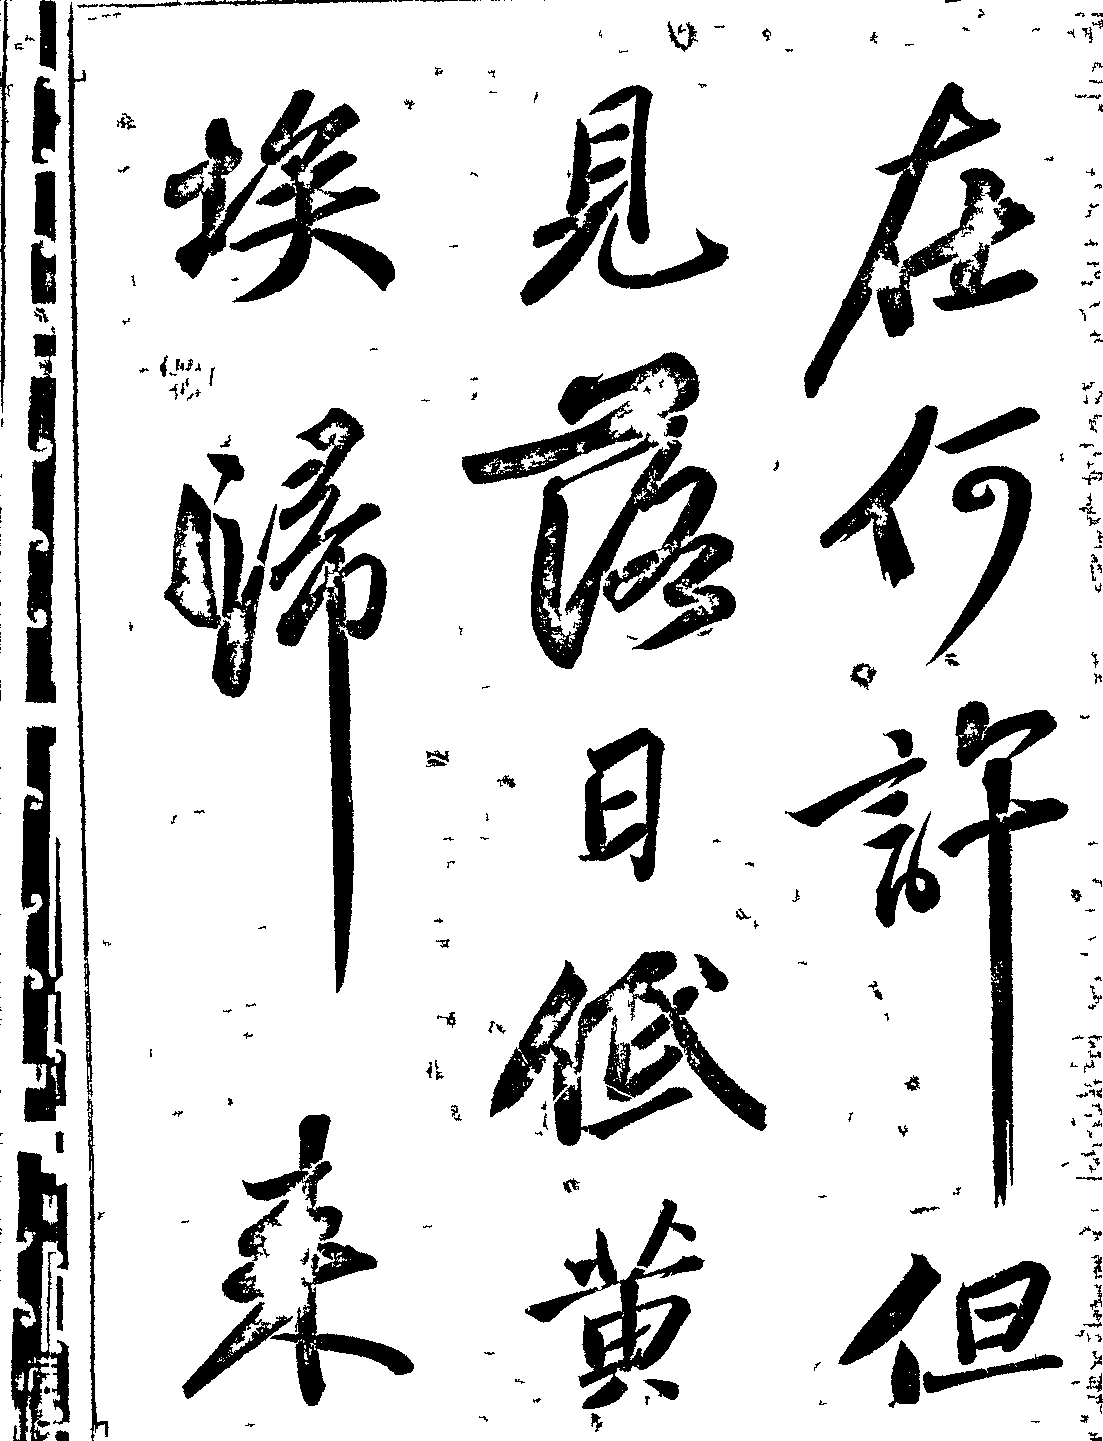 在何許但
見落日低黃
埃歸來